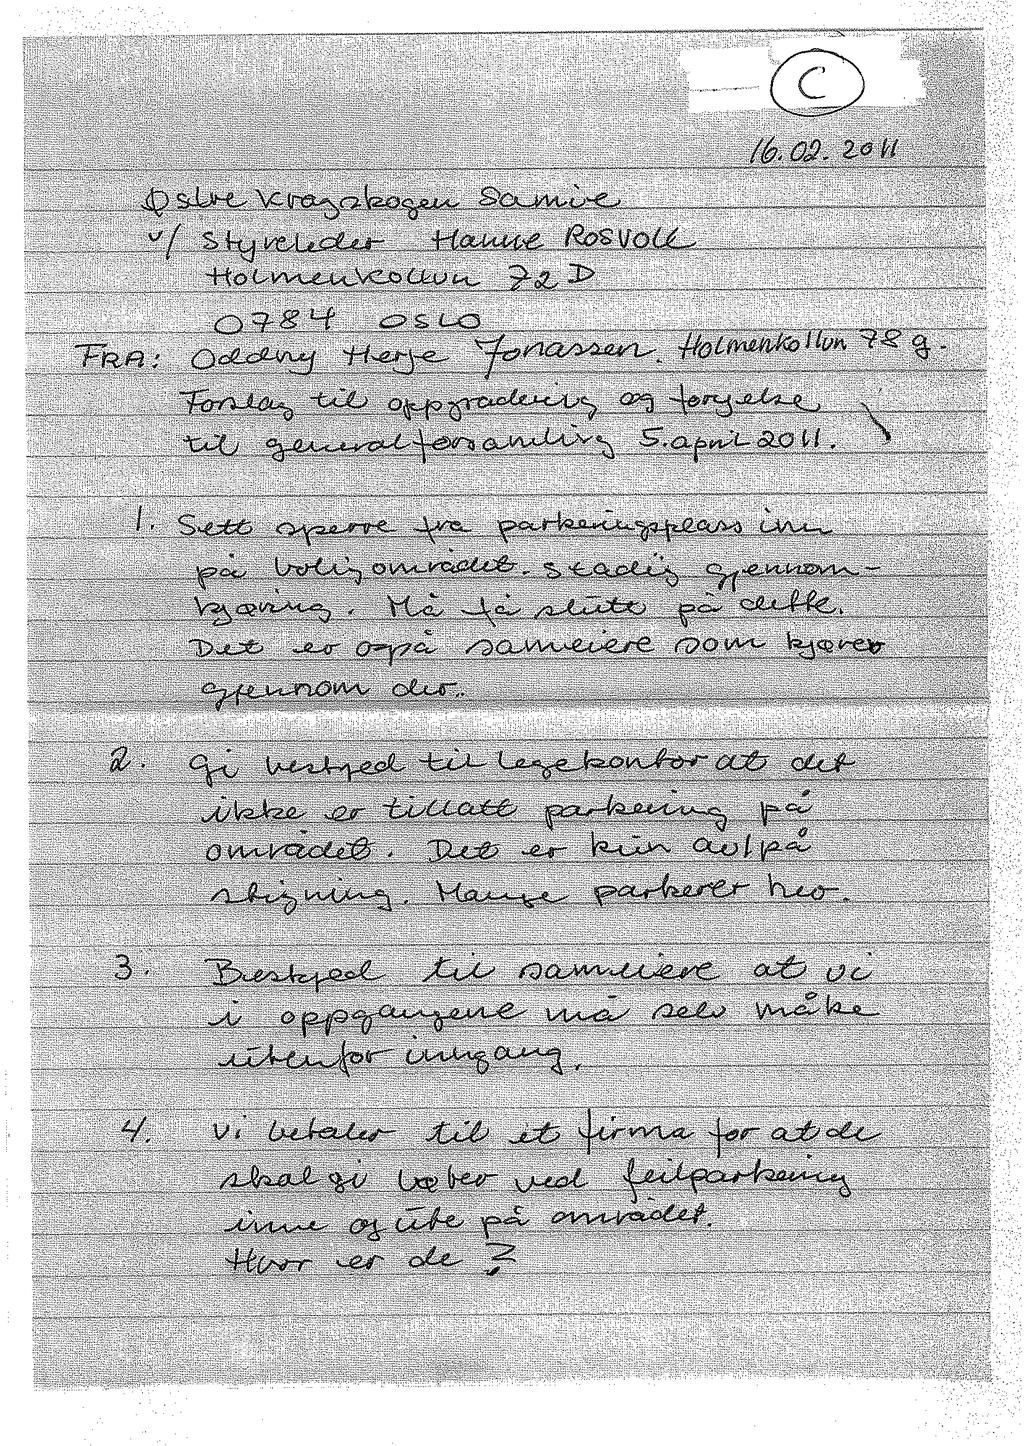 C
16.02.2011
Østre Kragskogen Samie
v/ Styreleder Hanne Rosvoll
Holmenkollvn 72 D
0784 OSLO
FRA: Oddny Herje Jonassen. Holmenkollvn 78 g.
Forslag til oppgradering og fornyelse
til generalforsamling 5. april 2011.
1. Sett sperre fra parkeringsplass inn
på boligområdet. Stadig gjennom-
kjøring. Må få slutt på dette.
Det er også sameiere som kjører
gjennom der.
2. Gi beskjed til legekontor at det
ikke er tillatt parkering på
området. Det er kun av/på
stigning. Mange parkerer her.
3. Beskjed til sameiere at vi
i oppgangene må selv måke
utenfor inngang.
4. Vi betaler til et firma for at de
skal gi bøter ved feilparkering
inne og ute på området.
Hvor er de ?